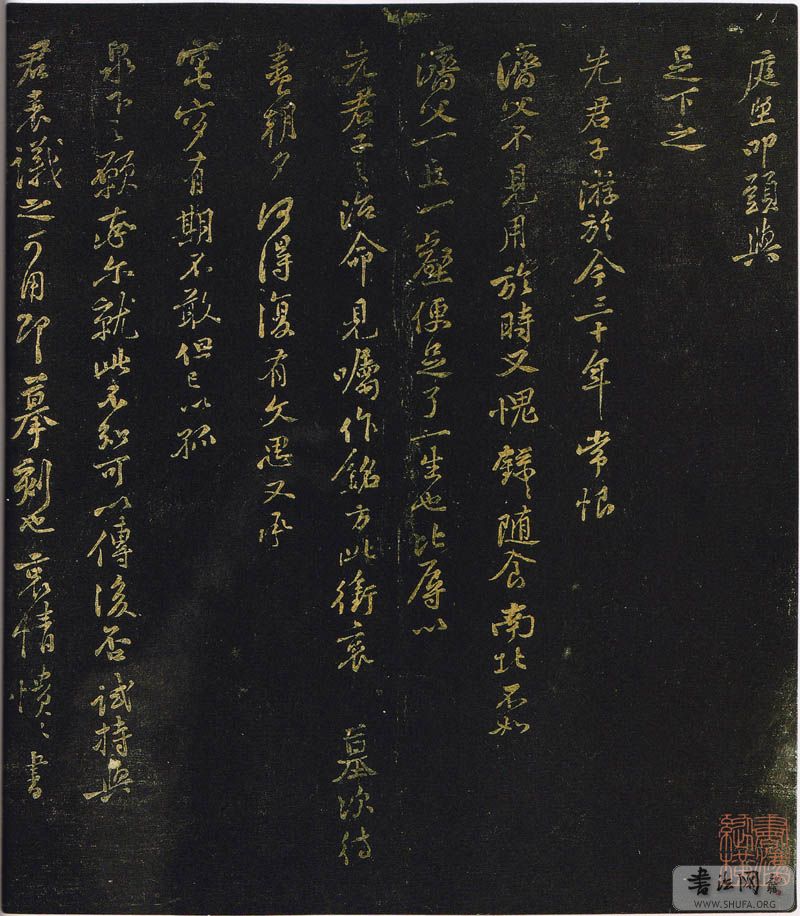 庭堅叩頭與
足下之
先君子游於今三十年常恨
濟父不見用於時又愧録〻隨食南北不如
濟父一丘一壑便足了一生也比辱以
先君子之治命見囑作銘方此銜哀 墓次待
盡朝夕何得復有文思又承
窀穸有期不敢但已以孤
泉下之願率尔就此不知可以傳後否試持與
君素議之可用即摹刻也哀情憒〻書
書法网
WWW.SHUFA.ORG